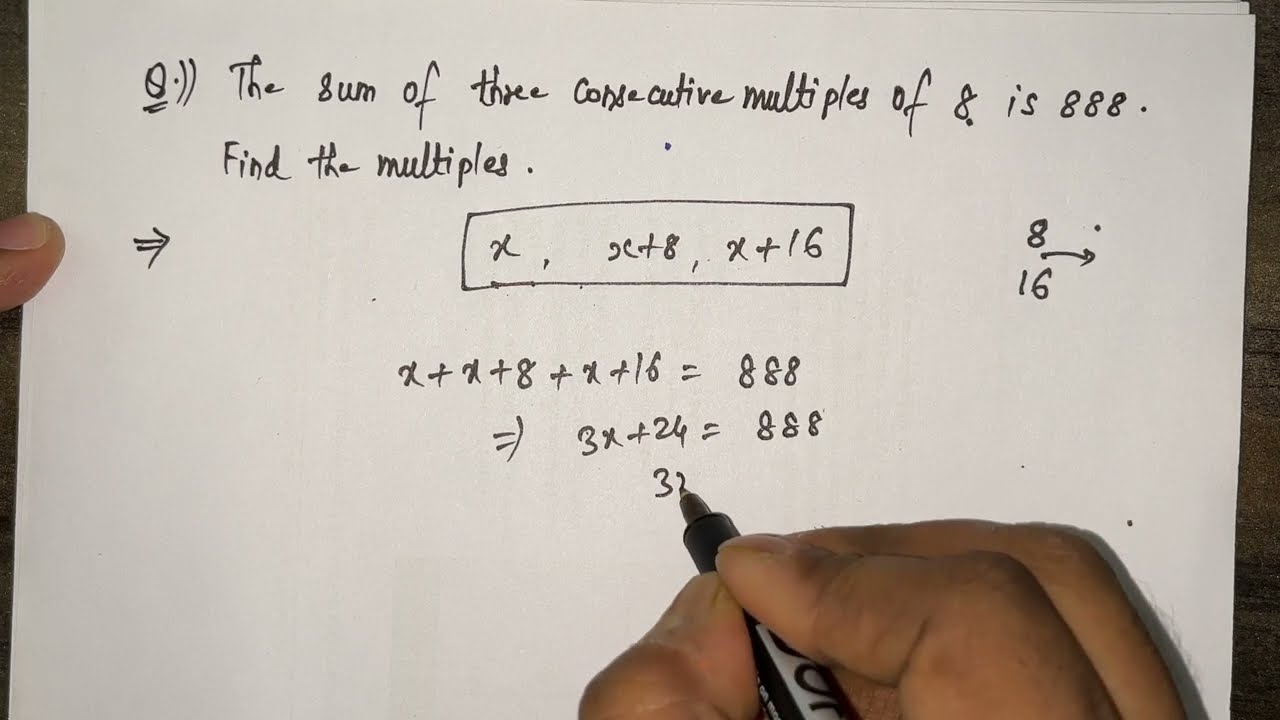 Q.)) The sum of three consecutive multiples of 8 is 888.
Find the multiples.
⇒ x, x+8, x+16
8
16
x+x+8+x+16 = 888
⇒ 3x+24 = 888
3x